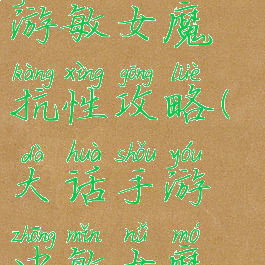 游敏女魔
kàng xìng gōng lüè
抗性攻略(
dà huà shǒu yóu
大话手游
zhōng mǐn nǚ mó